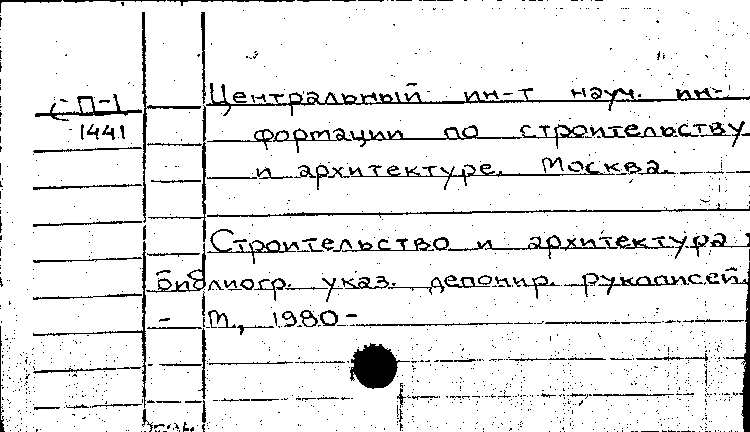 С П-1
1441
Центральный ин-т науч. ин-
формации по строительству
и архитектуре. Москва.
Строительство и архитектура :
библиогр. указ. депонир. рукописей.
- М., 1980-